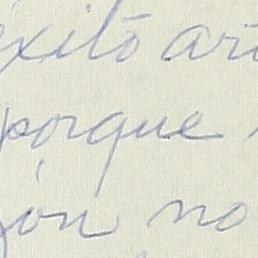 éxito art
porque
zón no